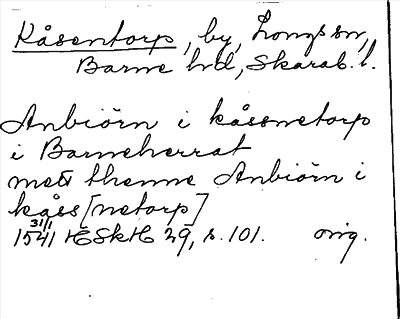 Kåsentorp, by, Longs sn,
Barne hd, Skarab. l.
Anbiörn i kåssnetorp
i Barneherrat
mett thenne Anbiörn i
kåss[netorp]
31/1
1541 HSkH 29, s. 101. orig.